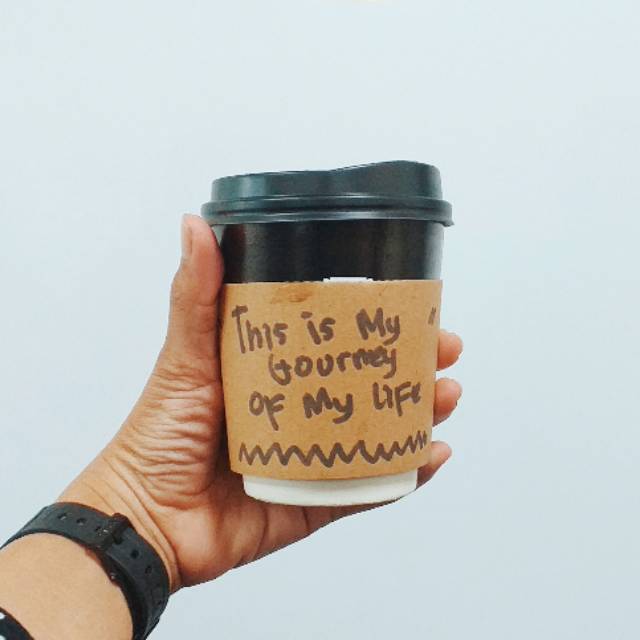 This is My
Gourney
of My Life